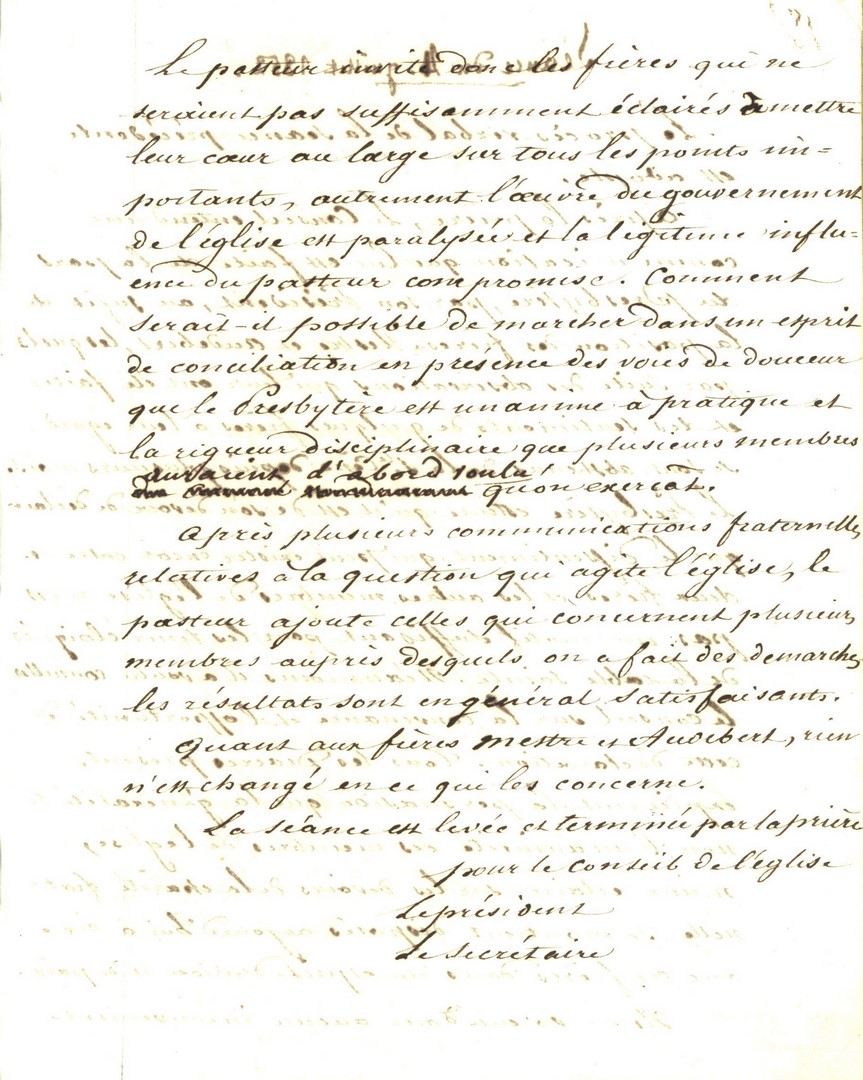 Le pasteur invite donc les frères qui ne
seraient pas suffisamment éclairés à mettre
leur cœur au large sur tous les points im=
portants, autrement l'œuvre du gouvernement
de l'église est paralysée et la légitime influ-
ence du pasteur compromise. Comment
serait-il possible de marcher dans un esprit
de conciliation en présence des voies de douceur
que le Presbytère est unanime à pratiquer et
la rigueur disciplinaire que plusieurs membres
auraient d'abord voulu
qu'on exerçât.
Après plusieurs communications fraternelles
relatives à la question qui agite l'église, le
pasteur ajoute celles qui concernent plusieurs
membres auprès desquels on a fait des demarches
les résultats sont en général satisfaisants.
Quant aux frères Mettre et Audibert, rien
n'est changé en ce qui les concerne.
La séance est levée et terminée par la prière
pour le Conseil de l'église
Le président
Le secrétaire